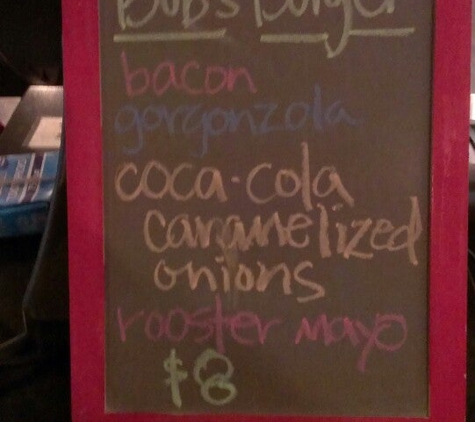 Bob's Burger
bacon
gorgonzola
coca-cola
caramelized
onions
rooster mayo
$8